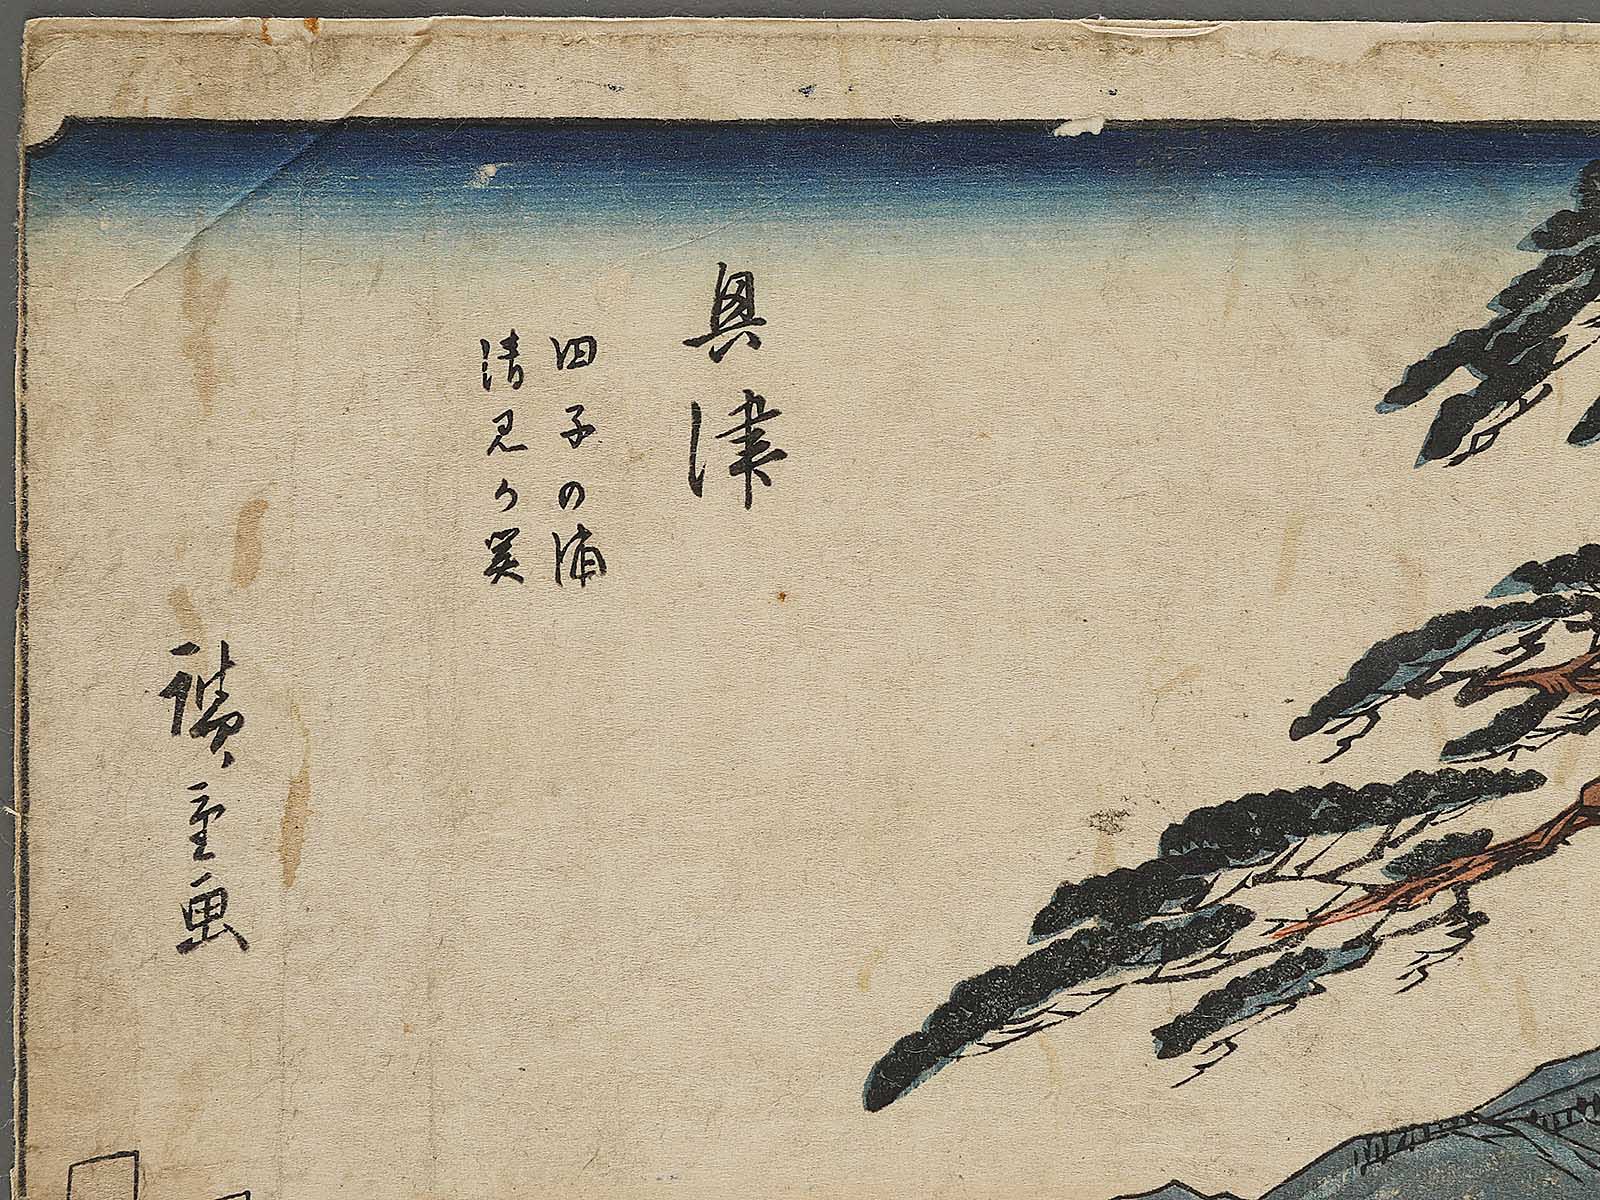 奥津
田子の浦
清見か関
廣重画